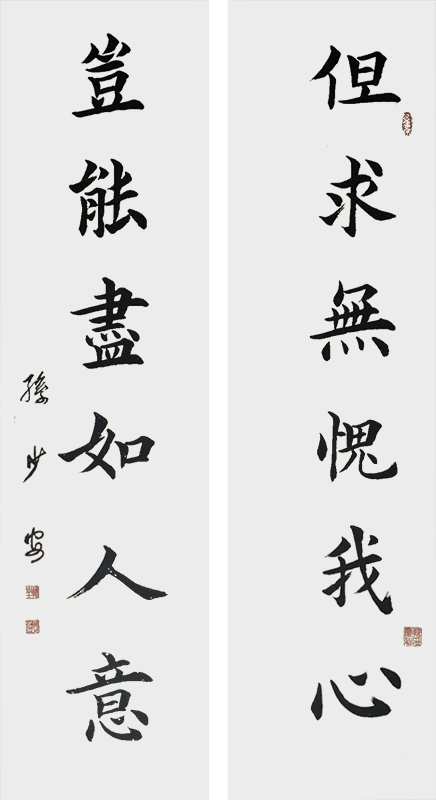 但求無愧我心
豈能盡如人意